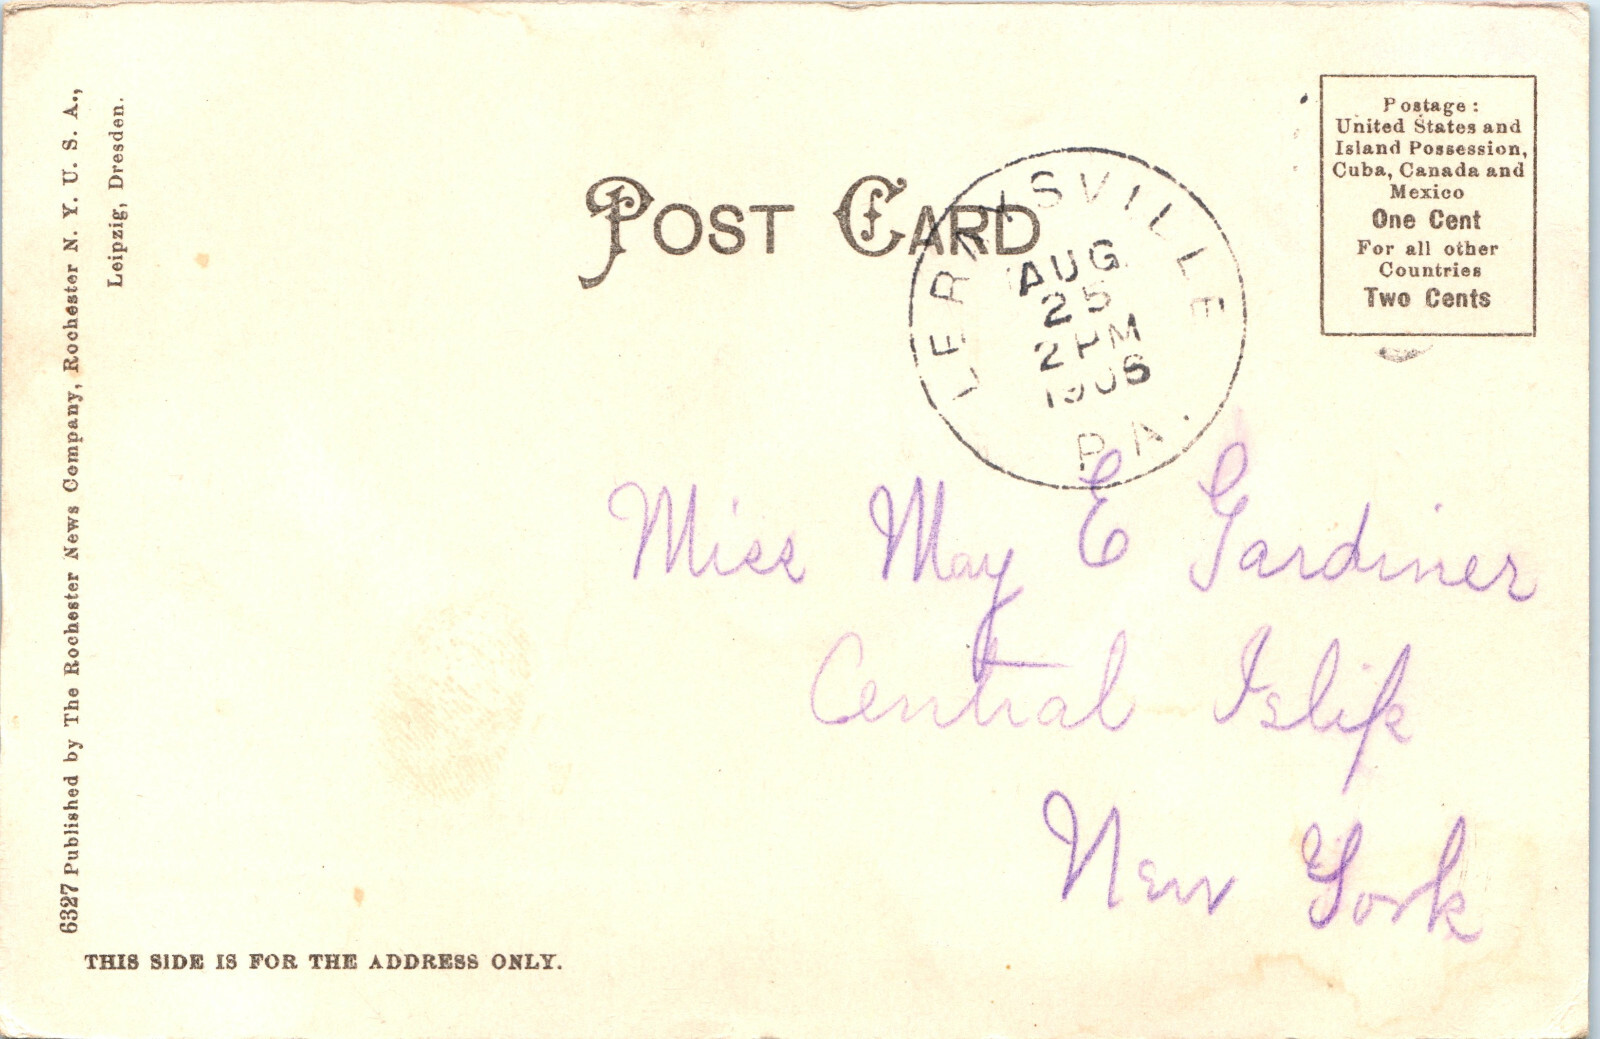 6327 Published by The Rochester News Company, Rochester N. Y. U. S. A.,
Leipzig, Dresden.
POST CARD
LEHNSVILLE
AUG
25
2 PM
1906
PA.
Postage:
United States and
Island Possession,
Cuba, Canada and
Mexico
One Cent
For all other
Countries
Two Cents
Miss May E Gardiner
Central Islip
New York
THIS SIDE IS FOR THE ADDRESS ONLY.